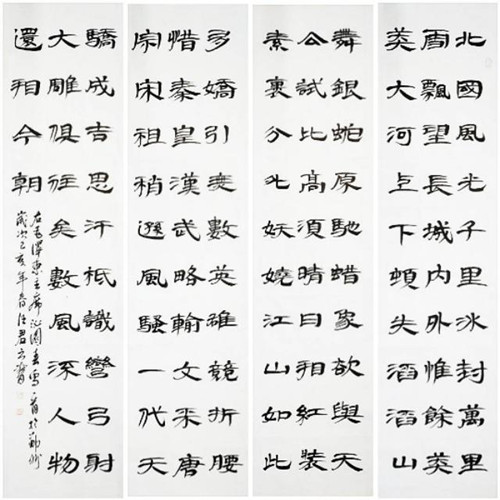 北國風光千里冰封萬里
雪飄望長城内外惟餘莽
莽大河上下頓失滔滔山
舞銀蛇原馳蠟象欲與天
公試比高須晴日看紅裝
素裹分外妖嬈江山如此
多嬌引無數英雄競折腰
惜秦皇漢武略輸文采唐
宗宋祖稍遜風騷一代天
驕成吉思汗祇識彎弓射
大雕俱往矣數風流人物
還看今朝
右毛澤東主席沁園春雪一首於
歲次己亥年春